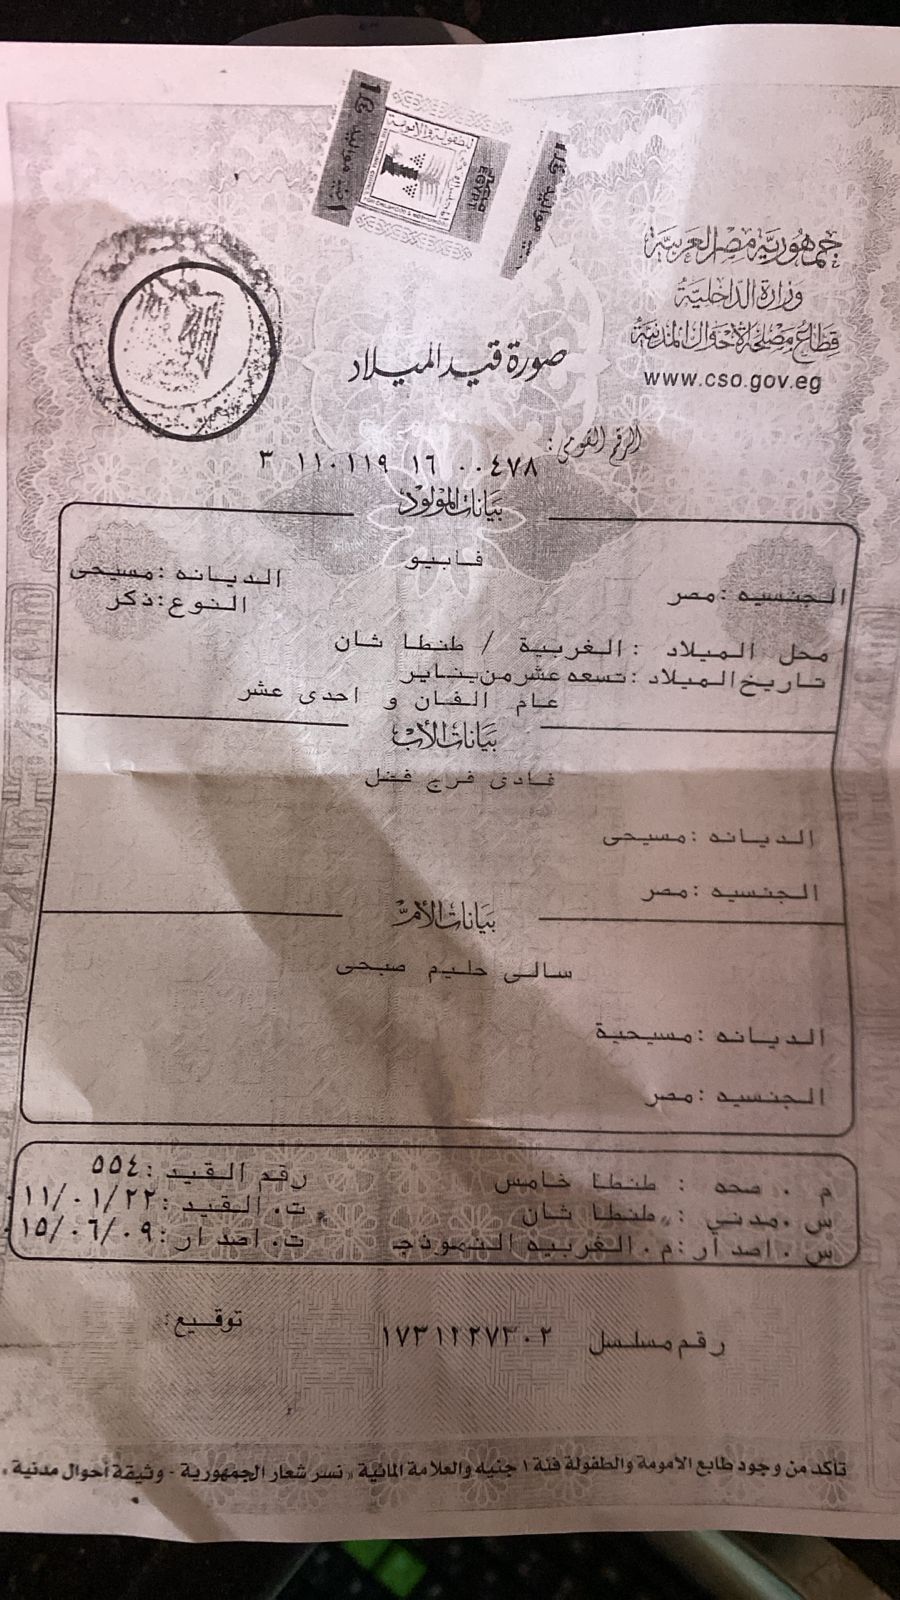 جمهورية مصر العربية
وزارة الداخلية
قطاع مصلحة الأحوال المدنية
www.cso.gov.eg
مصر
EGYPT
صورة قيد الميلاد
الرقم القومى:
٣ ١١٠١١٩ ١٦ ٠٠٤٧٨
بيانات المولود
فابيو
الجنسيه :مصر
الديانه :مسيحى
النوع:ذكر
محل الميلاد :الغربية / طنطا ثان
تاريخ الميلاد :تسعه عشر من يناير
عام الفان و احدى عشر
بيانات الأب
فادى فرج فضل
الديانه :مسيحى
الجنسيه :مصر
بيانات الأم
سالى حليم صبحى
الديانه :مسيحية
الجنسيه :مصر
م . صحه : طنطا خامس رقم القيد :٥٥٤
س .مدني : طنطا ثان ت. القيد :١١/٠١/٢٢
س . اصدار :م. الغربيه النموذجـ ت. اصدار :١٥/٠٦/٠٩
توقيع:
رقم مسلسل ١٧٣١٢٢٧٣٠٢
تأكد من وجود طابع الأمومة والطفولة فئة ١ جنيه والعلامة المائية « نسر شعار الجمهورية - وثيقة أحوال مدنية »